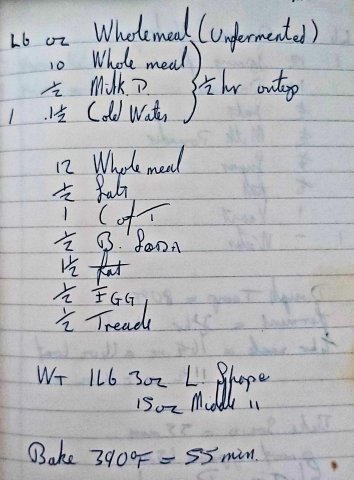 Lb oz Wholemeal (Unfermented)
10 Whole meal
½ Milk. P. } ½ hr ontop
1 .1½ Cold Water
12 Wholemeal
½ Salt
1 C of T
½ B. SODA
1½ fat
½ EGG
½ Treacle
WT 1LB 3oz L. Shape
15oz Middle 11
Bake 390°F = 55 min.